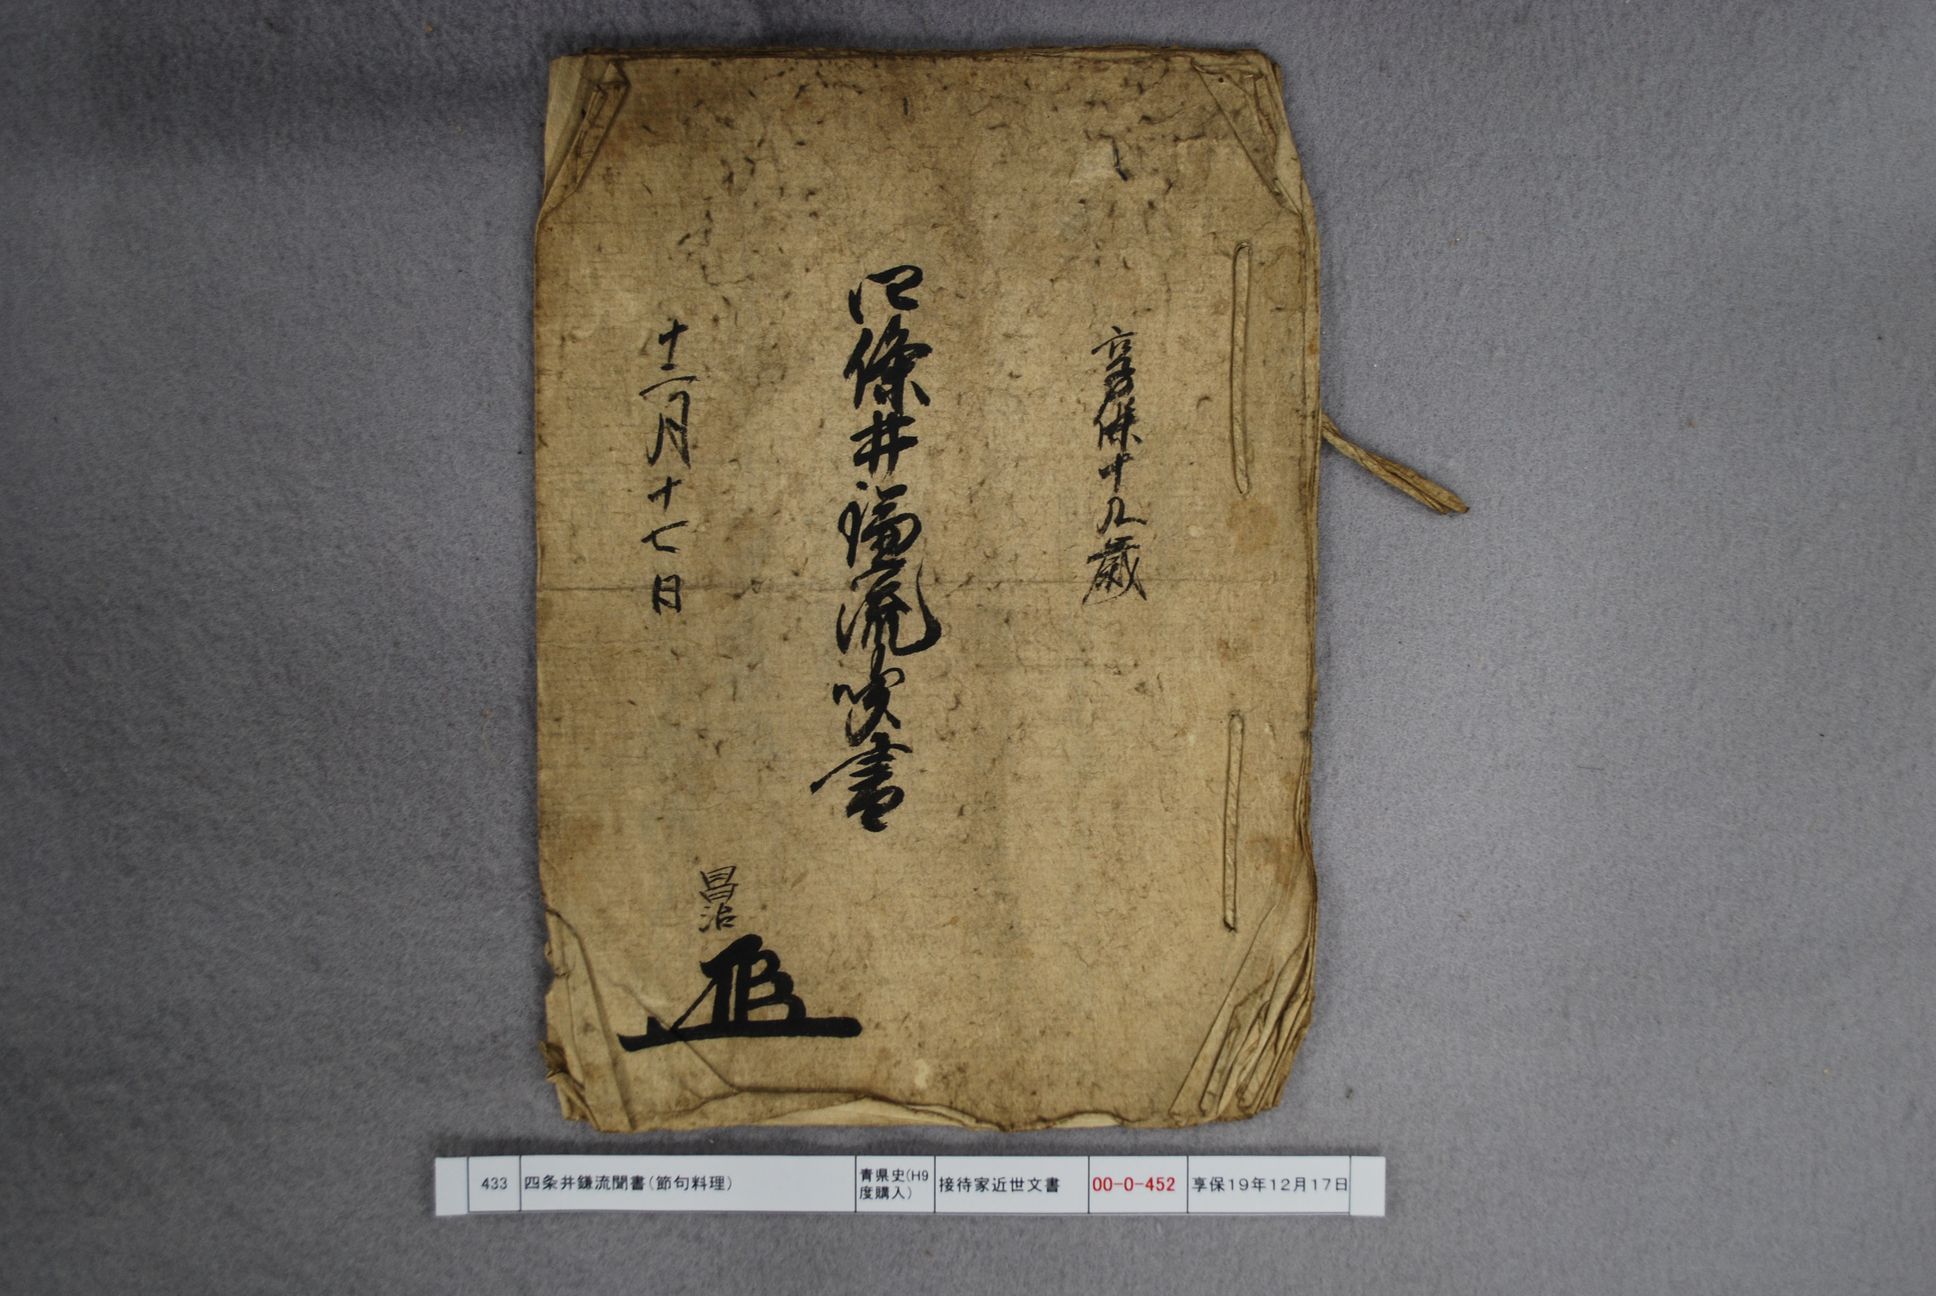 享保十九歳
四條井謙流聞書
十二月十七日
昌治
433
四条井鎌流聞書(節句料理)
青県史(H9
度購入)
接待家近世文書
00-0-452
享保19年12月17日